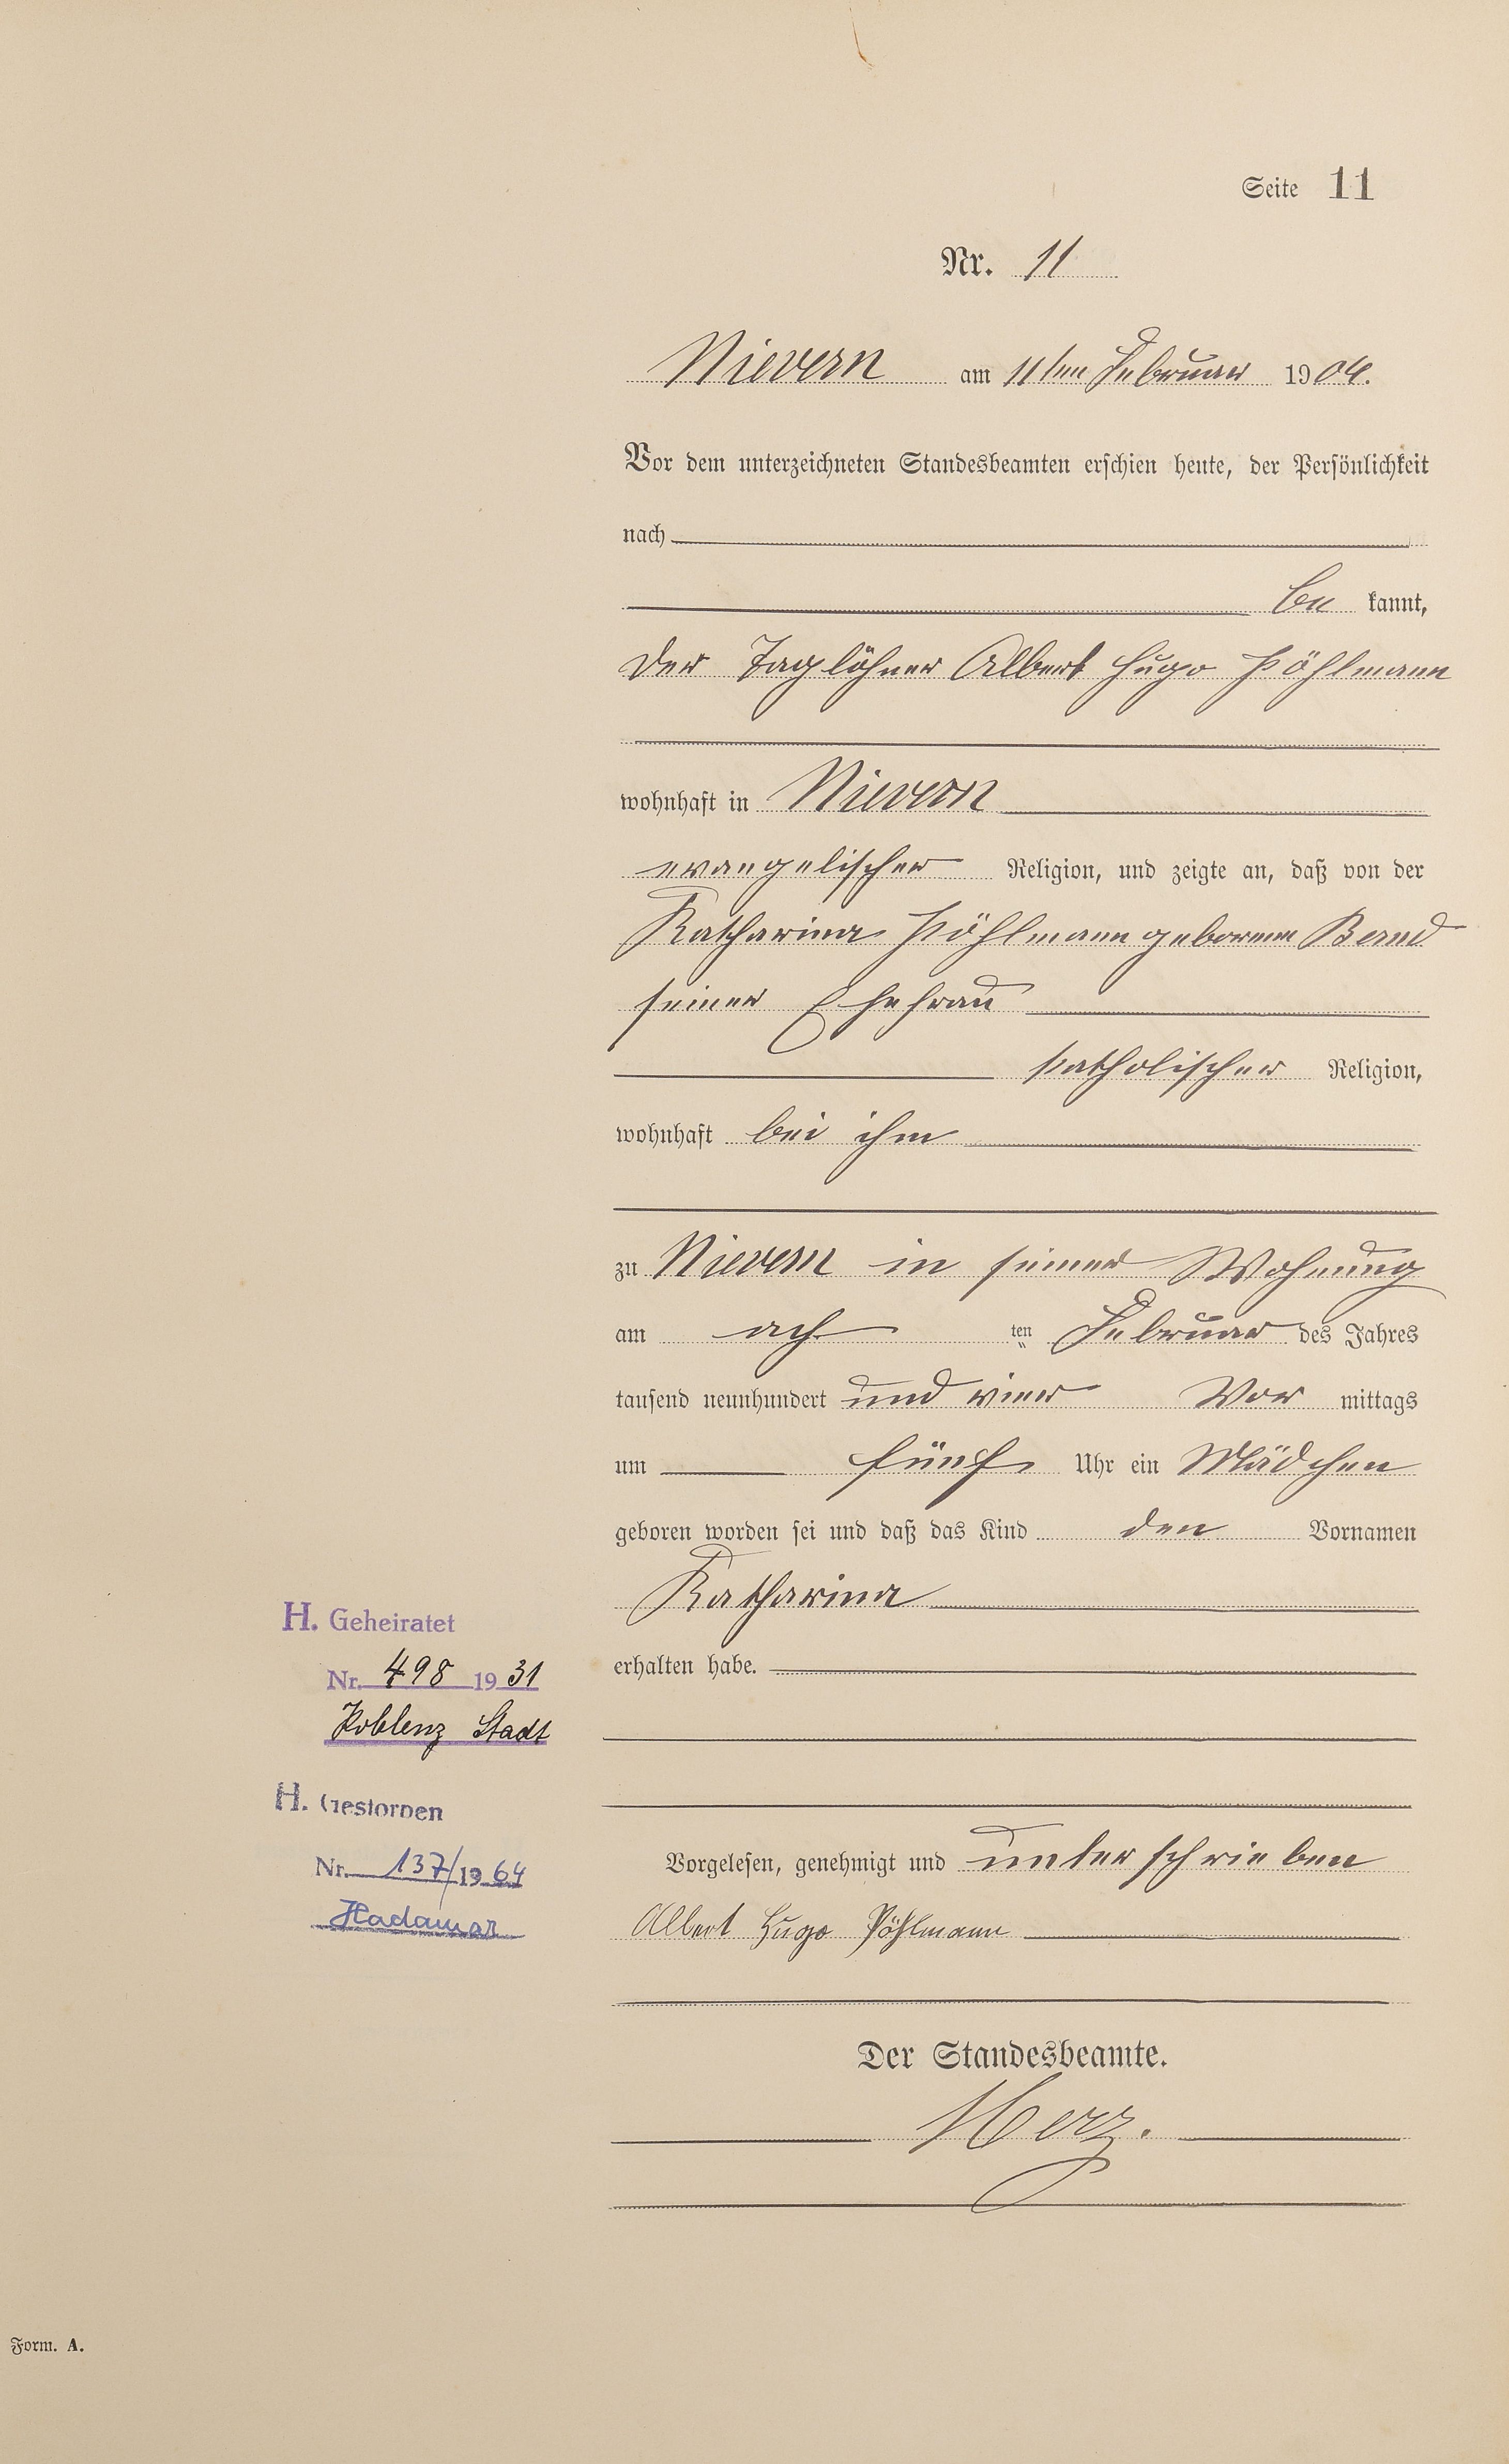 Seite 11
Nr. 11
Nievern am 11ten Februar 1904.
Vor dem unterzeichneten Standesbeamten erschien heute, der Persönlichkeit
nach
be kannt,
der Taglöhner Albert Hugo Pöhlmann
wohnhaft in Nievern
evangelischer Religion, und zeigte an, daß von der
Katharina Pöhlmann geborene Bernd
seiner Ehefrau
katholischer Religion,
wohnhaft bei ihm
zu Nievern in seiner Wohnung
am ach ten Februar des Jahres
tausend neunhundert und vier Vor mittags
um fünf Uhr ein Mädchen
geboren worden sei und daß das Kind den Vornamen
Katharina
erhalten habe.
H. Geheiratet
Nr. 498 1931
Koblenz Stadt
H. Gestorben
Nr. 137/1964
Hadamar
Vorgelesen, genehmigt und unterschrieben
Albert Hugo Pöhlmann
Der Standesbeamte.
Herz.
Form. A.